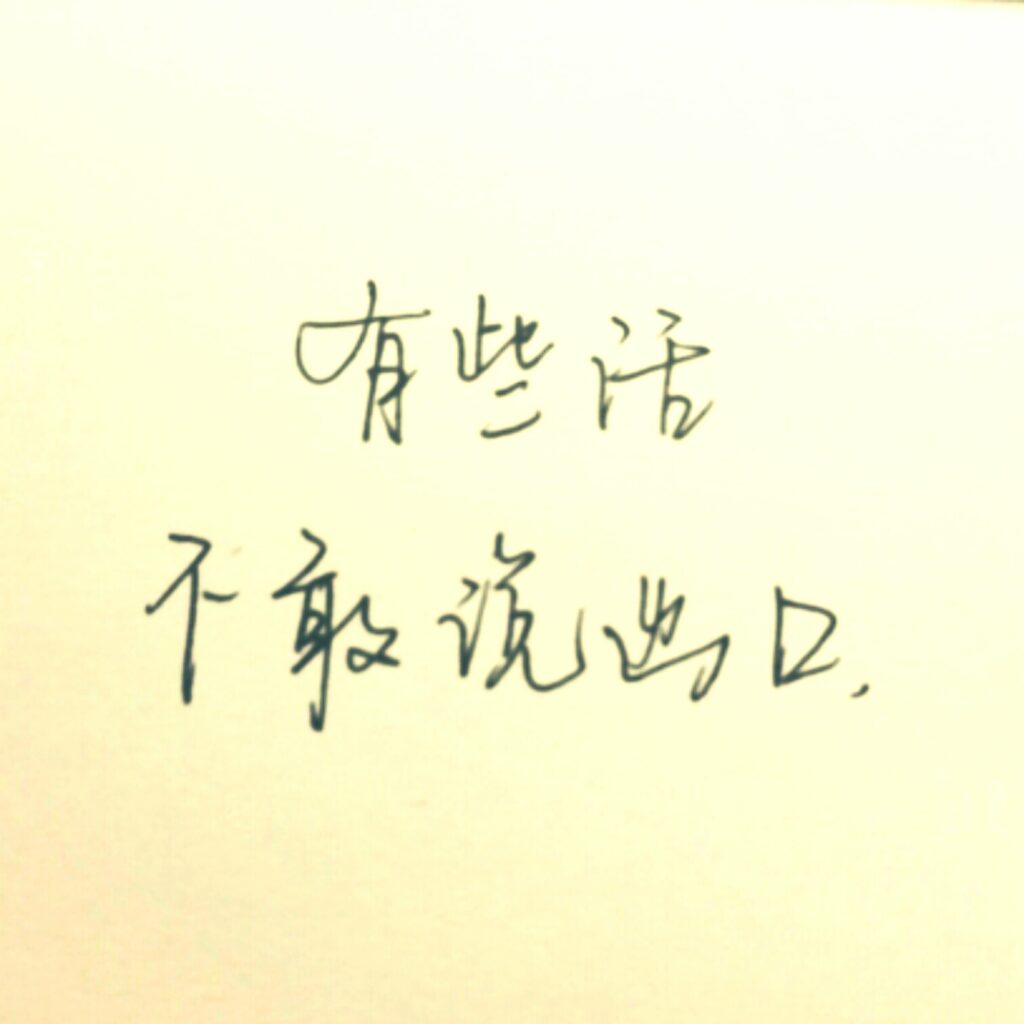 有些话
不敢说出口.